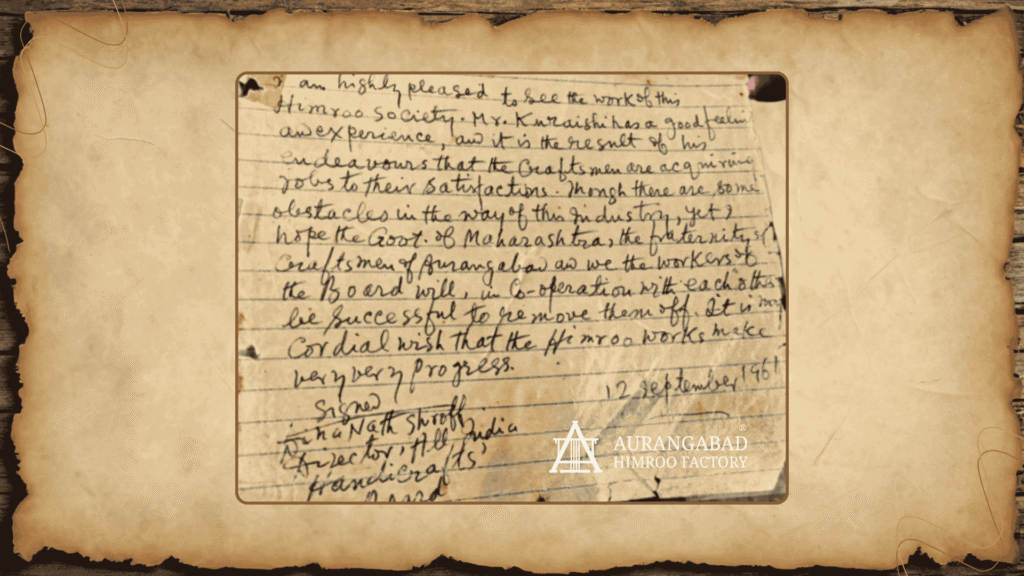 I am highly pleased to see the work of this
Himroo Society. Mr. Kuraishi has a good feelin
and experience, and it is the result of his
endeavours that the Craftsmen are acquiring
jobs to their Satisfactions. Though there are some
obstacles in the way of this Industry, yet I
hope the Govt. of Maharashtra, the fraternity of
Craftsmen of Aurangabad as we the workers of
the Board will, in Co-operation with each other
be successful to remove them off. It is my
Cordial wish that the Himroo works make
very very progress.
12 September 1961
Signed
Nath Shroff
Director, All India
Handicrafts
Board
AURANGABAD®
HIMROO FACTORY